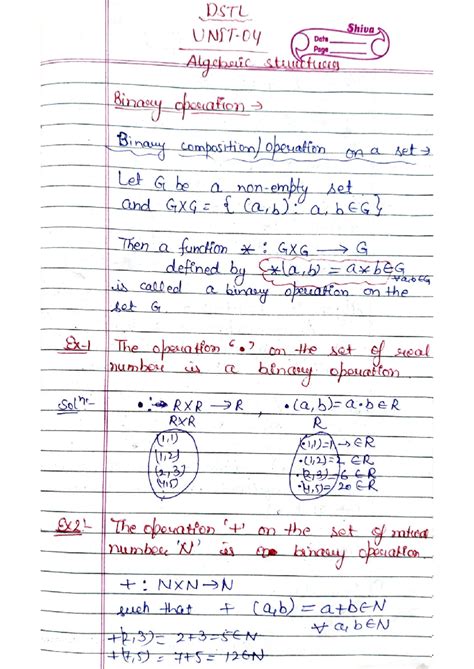 DSTL
UNIT-04
Shiva
Date
Page
Algebraic structures
Binary operation →
Binary composition/operation on a set →
Let G be a non-empty set
and G×G = { (a,b) : a, b∈G}
Then a function * : G×G → G
defined by *(a,b) = a*b∈G
∀a,b∈G
is called a binary operation on the
set G
Ex-1 The operation '•' on the set of real
number is a binary operation
Solⁿ:- •: R×R → R , •(a,b) = a•b∈R
R×R R
(1,1) •(1,1)=1 → ∈R
(1,2) •(1,2)=2 ∈R
(2,3) •(2,3)=6 ∈R
(4,5) •(4,5)=20 ∈R
Ex2:- The operation '+' on the set of natural
number 'N' is a binary operation.
+ : N×N → N
such that + (a,b) = a+b∈N
∀ a,b∈N
+(2,3) = 2+3=5∈N
+(7,5) = 7+5 = 12∈N